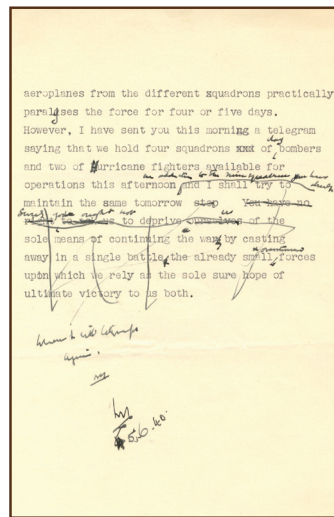 aeroplanes from the different squadrons practically
paralyses the force for four or five days.
However, I have sent you this morning a telegram
day
saying that we hold four squadrons xxx of bombers
and two of Hurricane fighters available for
in addition to the nine squadrons you have
operations this afternoon and I shall try to
maintain the same tomorrow step You have no
right to ask us to deprive ourselves of the
us
sole means of continuing the war by casting
away in a single battle the already small forces
upon which we rely as the sole sure hope of
ultimate victory to us both.
again.
5.6.40.